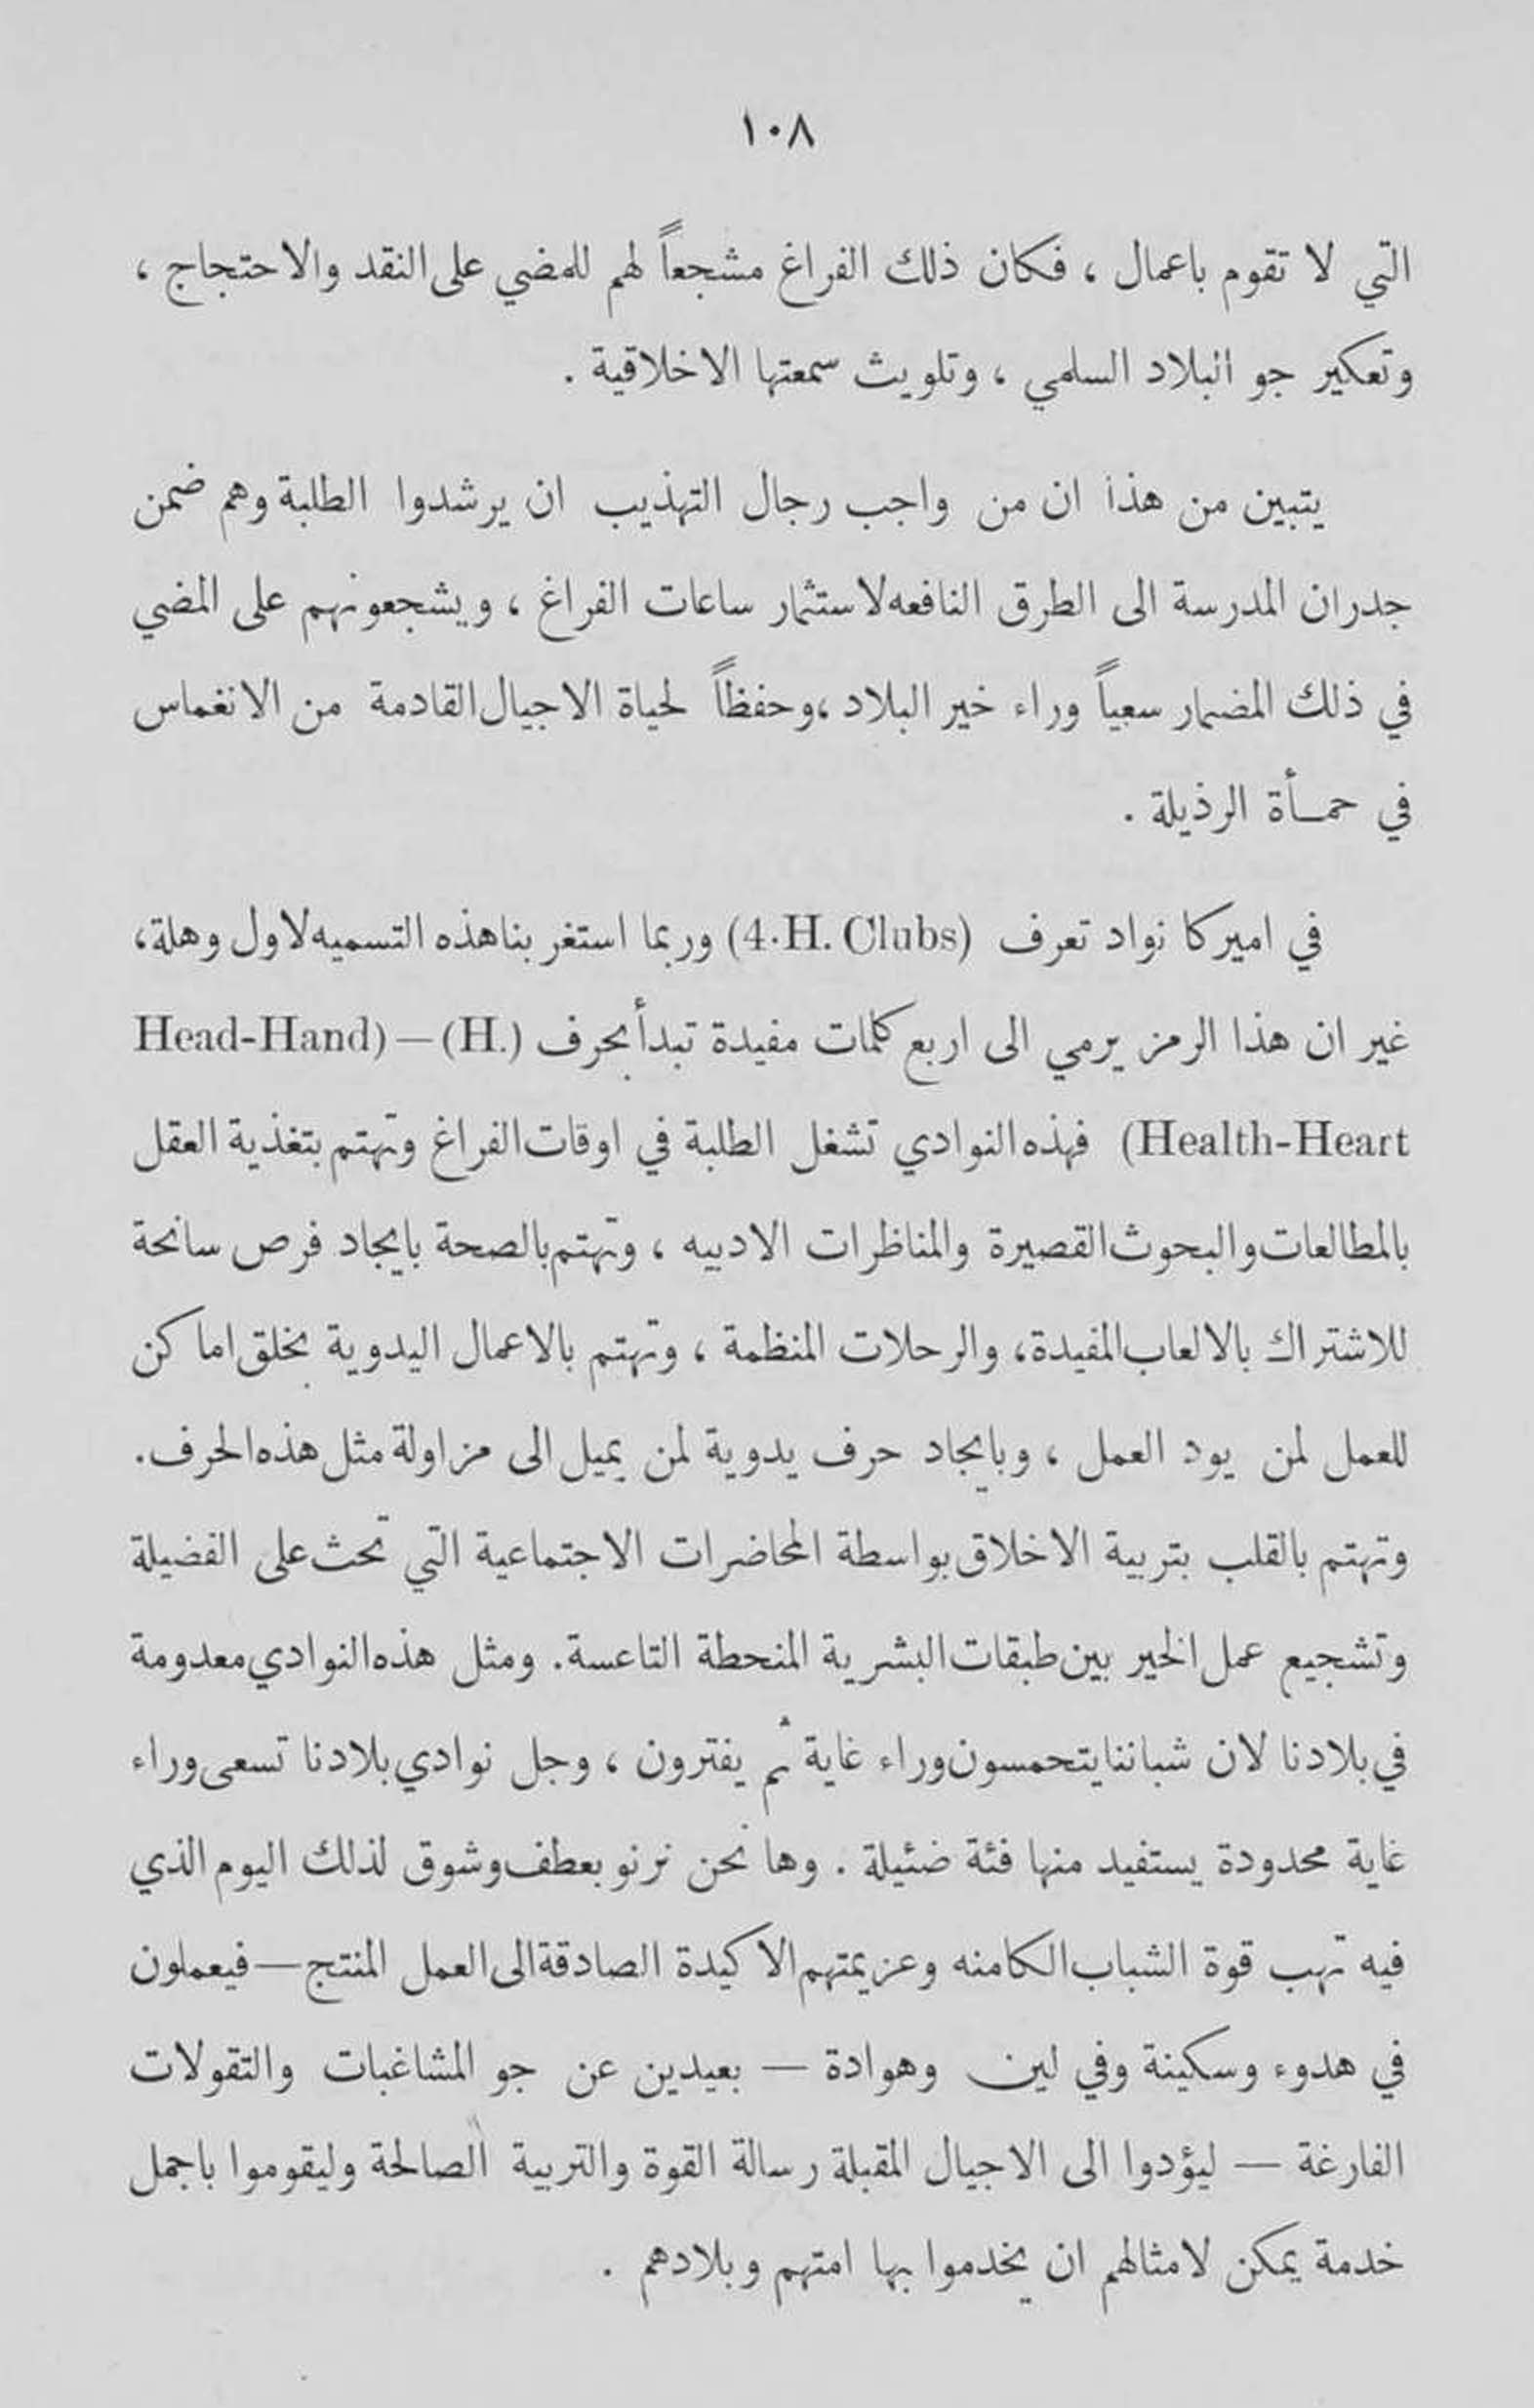 ١٠٨
التي لا تقوم باعمال ، فكان ذلك الفراغ مشجعاً لهم للمضي على النقد والاحتجاج ،
وتعكير جو البلاد السلمي ، وتلويث سمعتها الاخلاقية .
يتبين من هذا ان من واجب رجال التهذيب ان يرشدوا الطلبة وهم ضمن
جدران المدرسة الى الطرق النافعه لاستثمار ساعات الفراغ ، ويشجعونهم على المضي
في ذلك المضمار سعياً وراء خير البلاد ، وحفظاً لحياة الاجيال القادمة من الانغماس
في حمأة الرذيلة .
في اميركا نواد تعرف (4.H. Clubs) وربما استغربنا هذه التسميه لاول وهلة ،
غير ان هذا الرمز يرمي الى اربع كلمات مفيدة تبدأ بحرف (H.) — (Head-Hand
Health-Heart) فهذه النوادي تشغل الطلبة في اوقات الفراغ وتهتم بتغذية العقل
بالمطالعات والبحوث القصيرة والمناظرات الادبيه ، وتهتم بالصحة بايجاد فرص سانحة
للاشتراك بالالعاب المفيدة ، والرحلات المنظمة ، وتهتم بالاعمال اليدوية بخلق اماكن
للعمل لمن يود العمل ، وبايجاد حرف يدوية لمن يميل الى مزاولة مثل هذه الحرف .
وتهتم بالقلب بتربية الاخلاق بواسطة المحاضرات الاجتماعية التي تحث على الفضيلة
وتشجيع عمل الخير بين طبقات البشرية المنحطة التاعسة . ومثل هذه النوادي معدومة
في بلادنا لان شباننا يتحمسون وراء غاية ثم يفترون ، وجل نوادي بلادنا تسعى وراء
غاية محدودة يستفيد منها فئة ضئيلة . وها نحن نرنو بعطف وشوق لذلك اليوم الذي
فيه تهب قوة الشباب الكامنه وعزيمتهم الاكيدة الصادقة الى العمل المنتج — فيعملون
في هدوء وسكينة وفي لين وهوادة — بعيدين عن جو المشاغبات والتقولات
الفارغة — ليؤدوا الى الاجيال المقبلة رسالة القوة والتربية الصالحة وليقوموا باجمل
خدمة يمكن لامثالهم ان يخدموا بها امتهم وبلادهم .